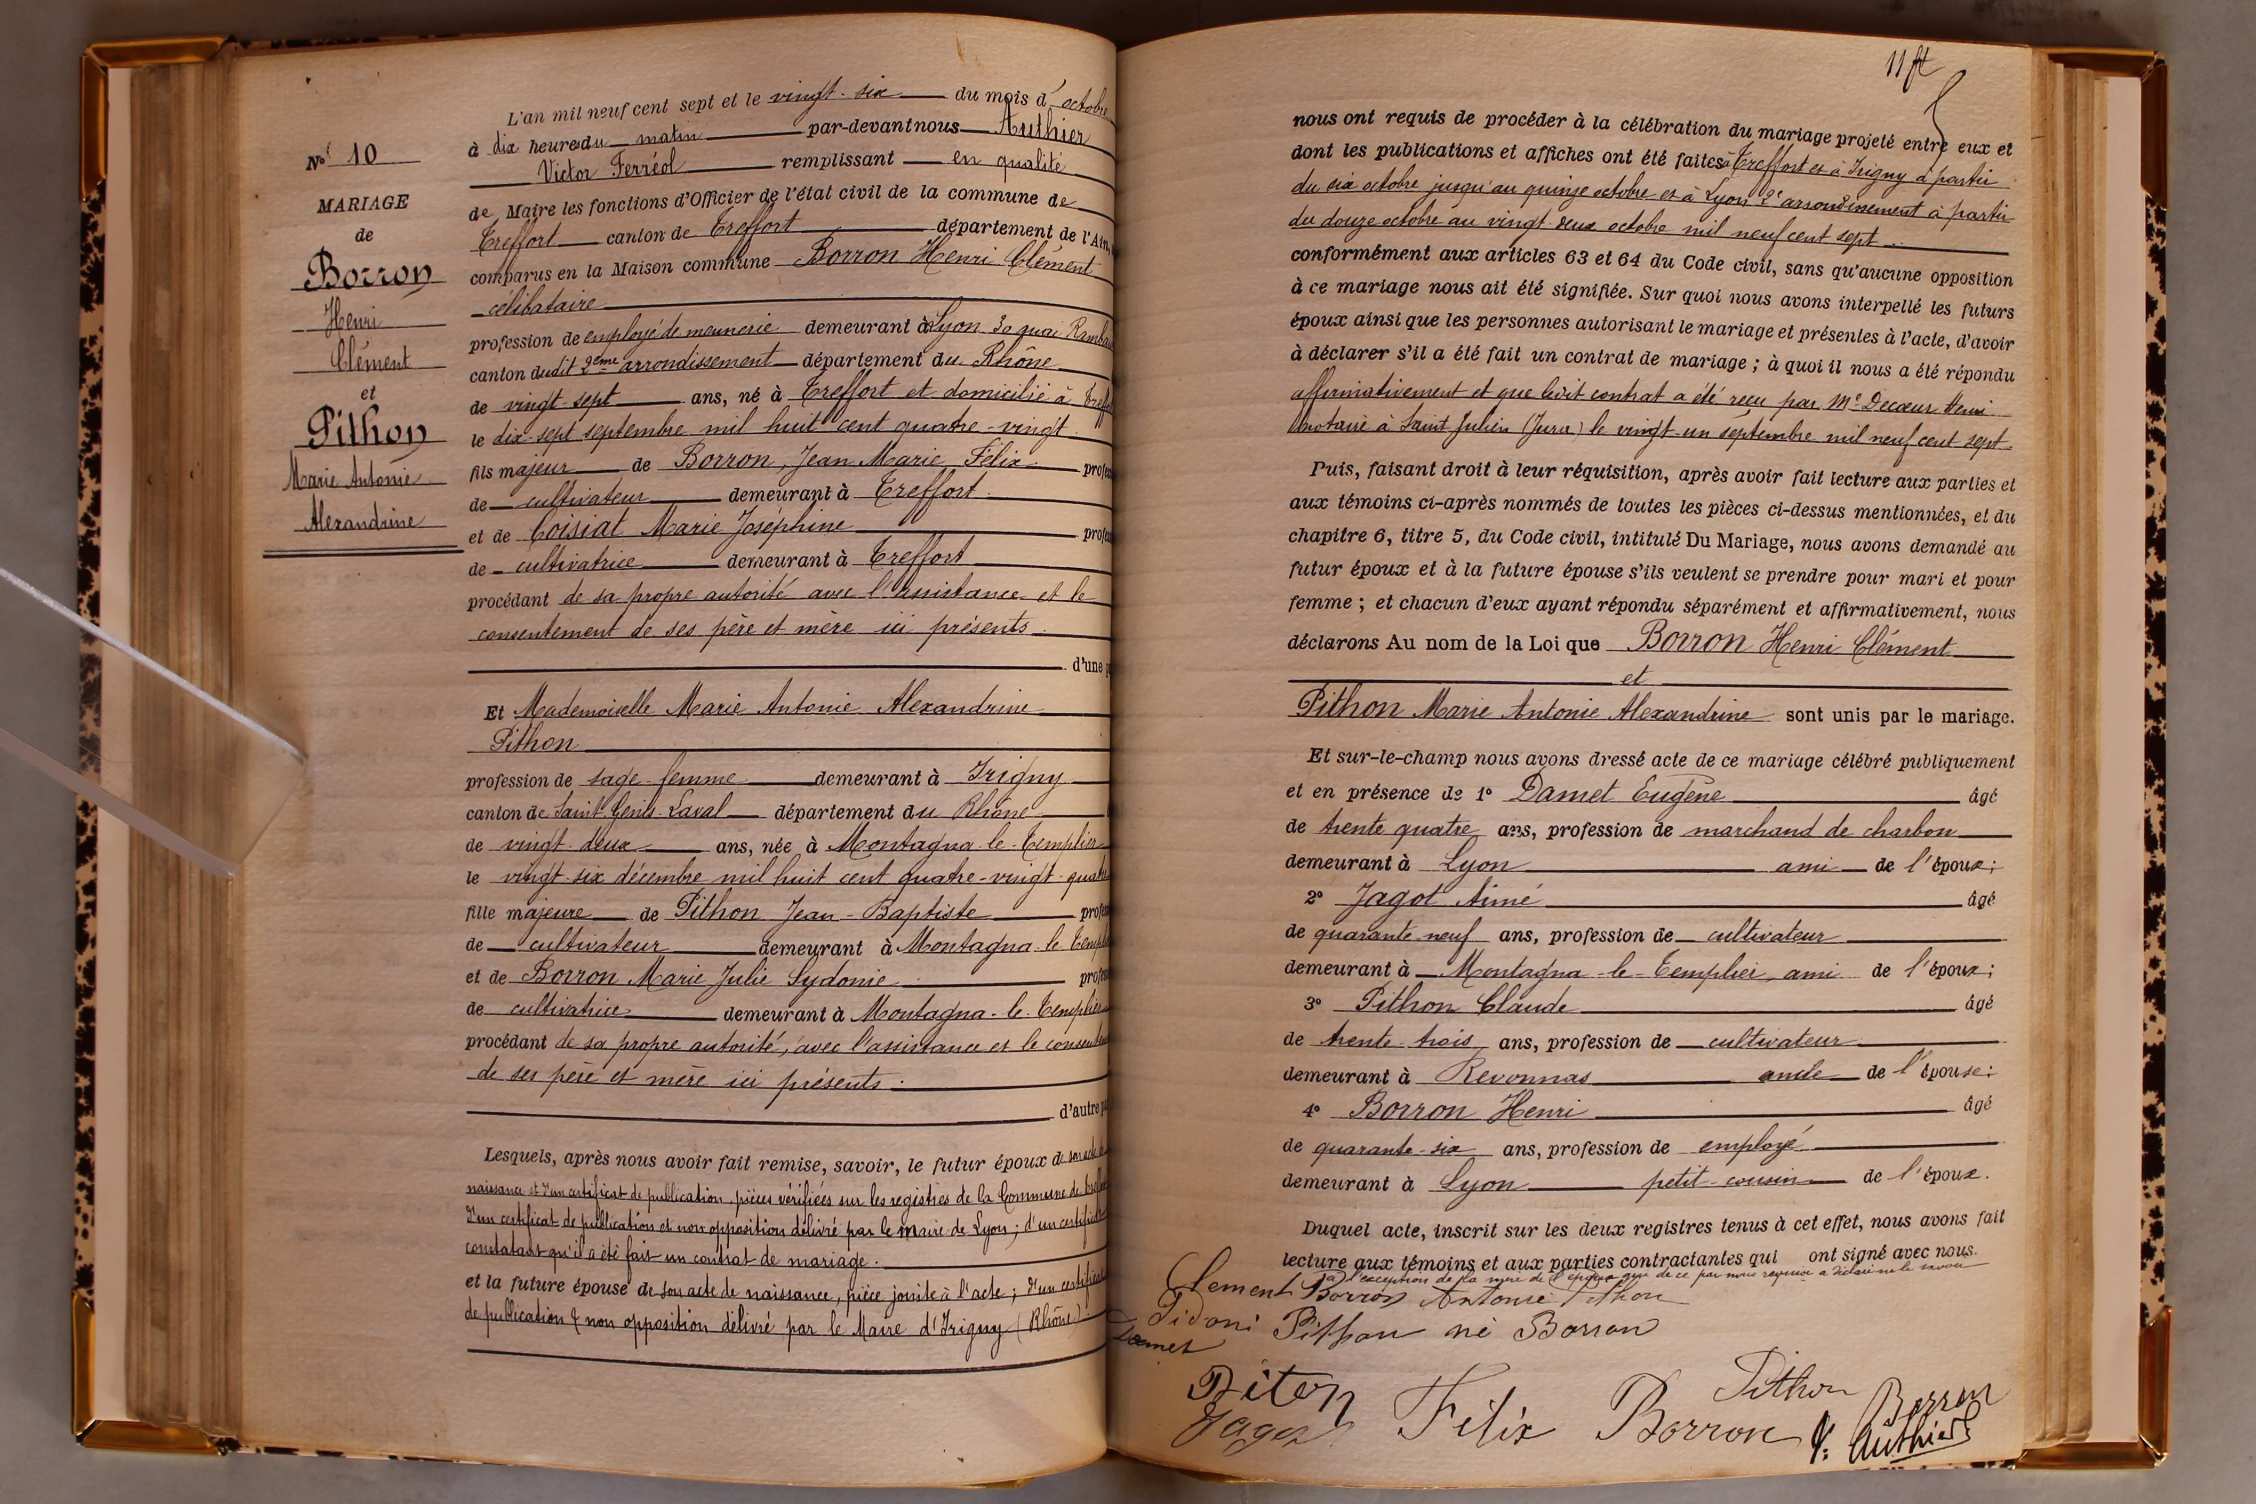 N° 10
MARIAGE
de
Borron
Henri
Clément
et
Pithon
Marie Antonie
Alexandrine
L'an mil neuf cent sept et le vingt-six du mois d'octobre
à dix heures du matin par-devant nous Authier
Victor Ferréol remplissant en qualité
de Maire les fonctions d'Officier de l'état civil de la commune de
Treffort canton de Treffort département de l'Ain,
comparus en la Maison commune Borron Henri Clément
célibataire
profession de employé de meunerie demeurant à Lyon 30 quai Rambau
canton dudit 2eme arrondissement département du Rhône
de vingt-sept ans, né à Treffort et domicilié à Treffo
le dix-sept septembre mil huit cent quatre-vingt
fils majeur de Borron, Jean Marie Félix profes
de cultivateur demeurant à Treffort
et de Coisiat Marie Joséphine profes
de cultivatrice demeurant à Treffort
procédant de sa propre autorité avec l'assistance et le
consentement de ses père et mère ici présents
d'une p
Et Mademoiselle Marie Antonie Alexandrine
Pithon
profession de sage-femme demeurant à Irigny
canton de Saint-Genis-Laval département du Rhône
de vingt-deux ans, née à Montagna-le-Templier
le vingt-six décembre mil huit cent quatre-vingt-quatre
fille majeure de Pithon Jean-Baptiste profes
de cultivateur demeurant à Montagna-le-Templ
et de Borron Marie Julie Sydonie profes
de cultivatrice demeurant à Montagna-le-Templier
procédant de sa propre autorité, avec l'assistance et le consentem
de ses père et mère ici présents.
d'autre pa
Lesquels, après nous avoir fait remise, savoir, le futur époux de son acte de
naissance et d'un certificat de publication, pièces vérifiées sur les registres de la Commune de Treffort
d'un certificat de publication et non opposition délivré par le maire de Lyon; d'un certificat
constatant qu'il a été fait un contrat de mariage.
et la future épouse de son acte de naissance, pièce jointe à l'acte; d'un certificat
de publication & non opposition délivré par le Maire d'Irigny (Rhône).
11 ft
nous ont requis de procéder à la célébration du mariage projeté entre eux et
dont les publications et affiches ont été faites à Treffort et à Irigny à partir
du six octobre jusqu'au quinze octobre et à Lyon 2e arrondissement à partir
du douze octobre au vingt-deux octobre mil neuf cent sept
conformément aux articles 63 et 64 du Code civil, sans qu'aucune opposition
à ce mariage nous ait été signifiée. Sur quoi nous avons interpellé les futurs
époux ainsi que les personnes autorisant le mariage et présentes à l'acte, d'avoir
à déclarer s'il a été fait un contrat de mariage; à quoi il nous a été répondu
affirmativement et que ledit contrat a été reçu par Me Decœur Henri
notaire à Saint Julien (Jura) le vingt-un septembre mil neuf cent sept
Puis, faisant droit à leur réquisition, après avoir fait lecture aux parties et
aux témoins ci-après nommés de toutes les pièces ci-dessus mentionnées, et du
chapitre 6, titre 5, du Code civil, intitulé Du Mariage, nous avons demandé au
futur époux et à la future épouse s'ils veulent se prendre pour mari et pour
femme; et chacun d'eux ayant répondu séparément et affirmativement, nous
déclarons Au nom de la Loi que Borron Henri Clément
et
Pithon Marie Antonie Alexandrine sont unis par le mariage.
Et sur-le-champ nous avons dressé acte de ce mariage célébré publiquement
et en présence de 1° Damet Eugène âgé
de trente quatre ans, profession de marchand de charbon
demeurant à Lyon ami de l'époux;
2° Jagot Aimé âgé
de quarante-neuf ans, profession de cultivateur
demeurant à Montagna-le-Templier, ami de l'époux;
3° Pithon Claude âgé
de trente-trois ans, profession de cultivateur
demeurant à Revonnas oncle de l'épouse;
4° Borron Henri âgé
de quarante-six ans, profession de employé
demeurant à Lyon petit-cousin de l'époux.
Duquel acte, inscrit sur les deux registres tenus à cet effet, nous avons fait
lecture aux témoins et aux parties contractantes qui ont signé avec nous.
à l'exception de la mère de l'époux qui de ce par nous requise a déclaré ne le savoir
Clement Borron Antonie Pithon
Sidoni Pithon né Borron
Damet
Piton Pithon Borron
Jagot Félix Borron V. Authier